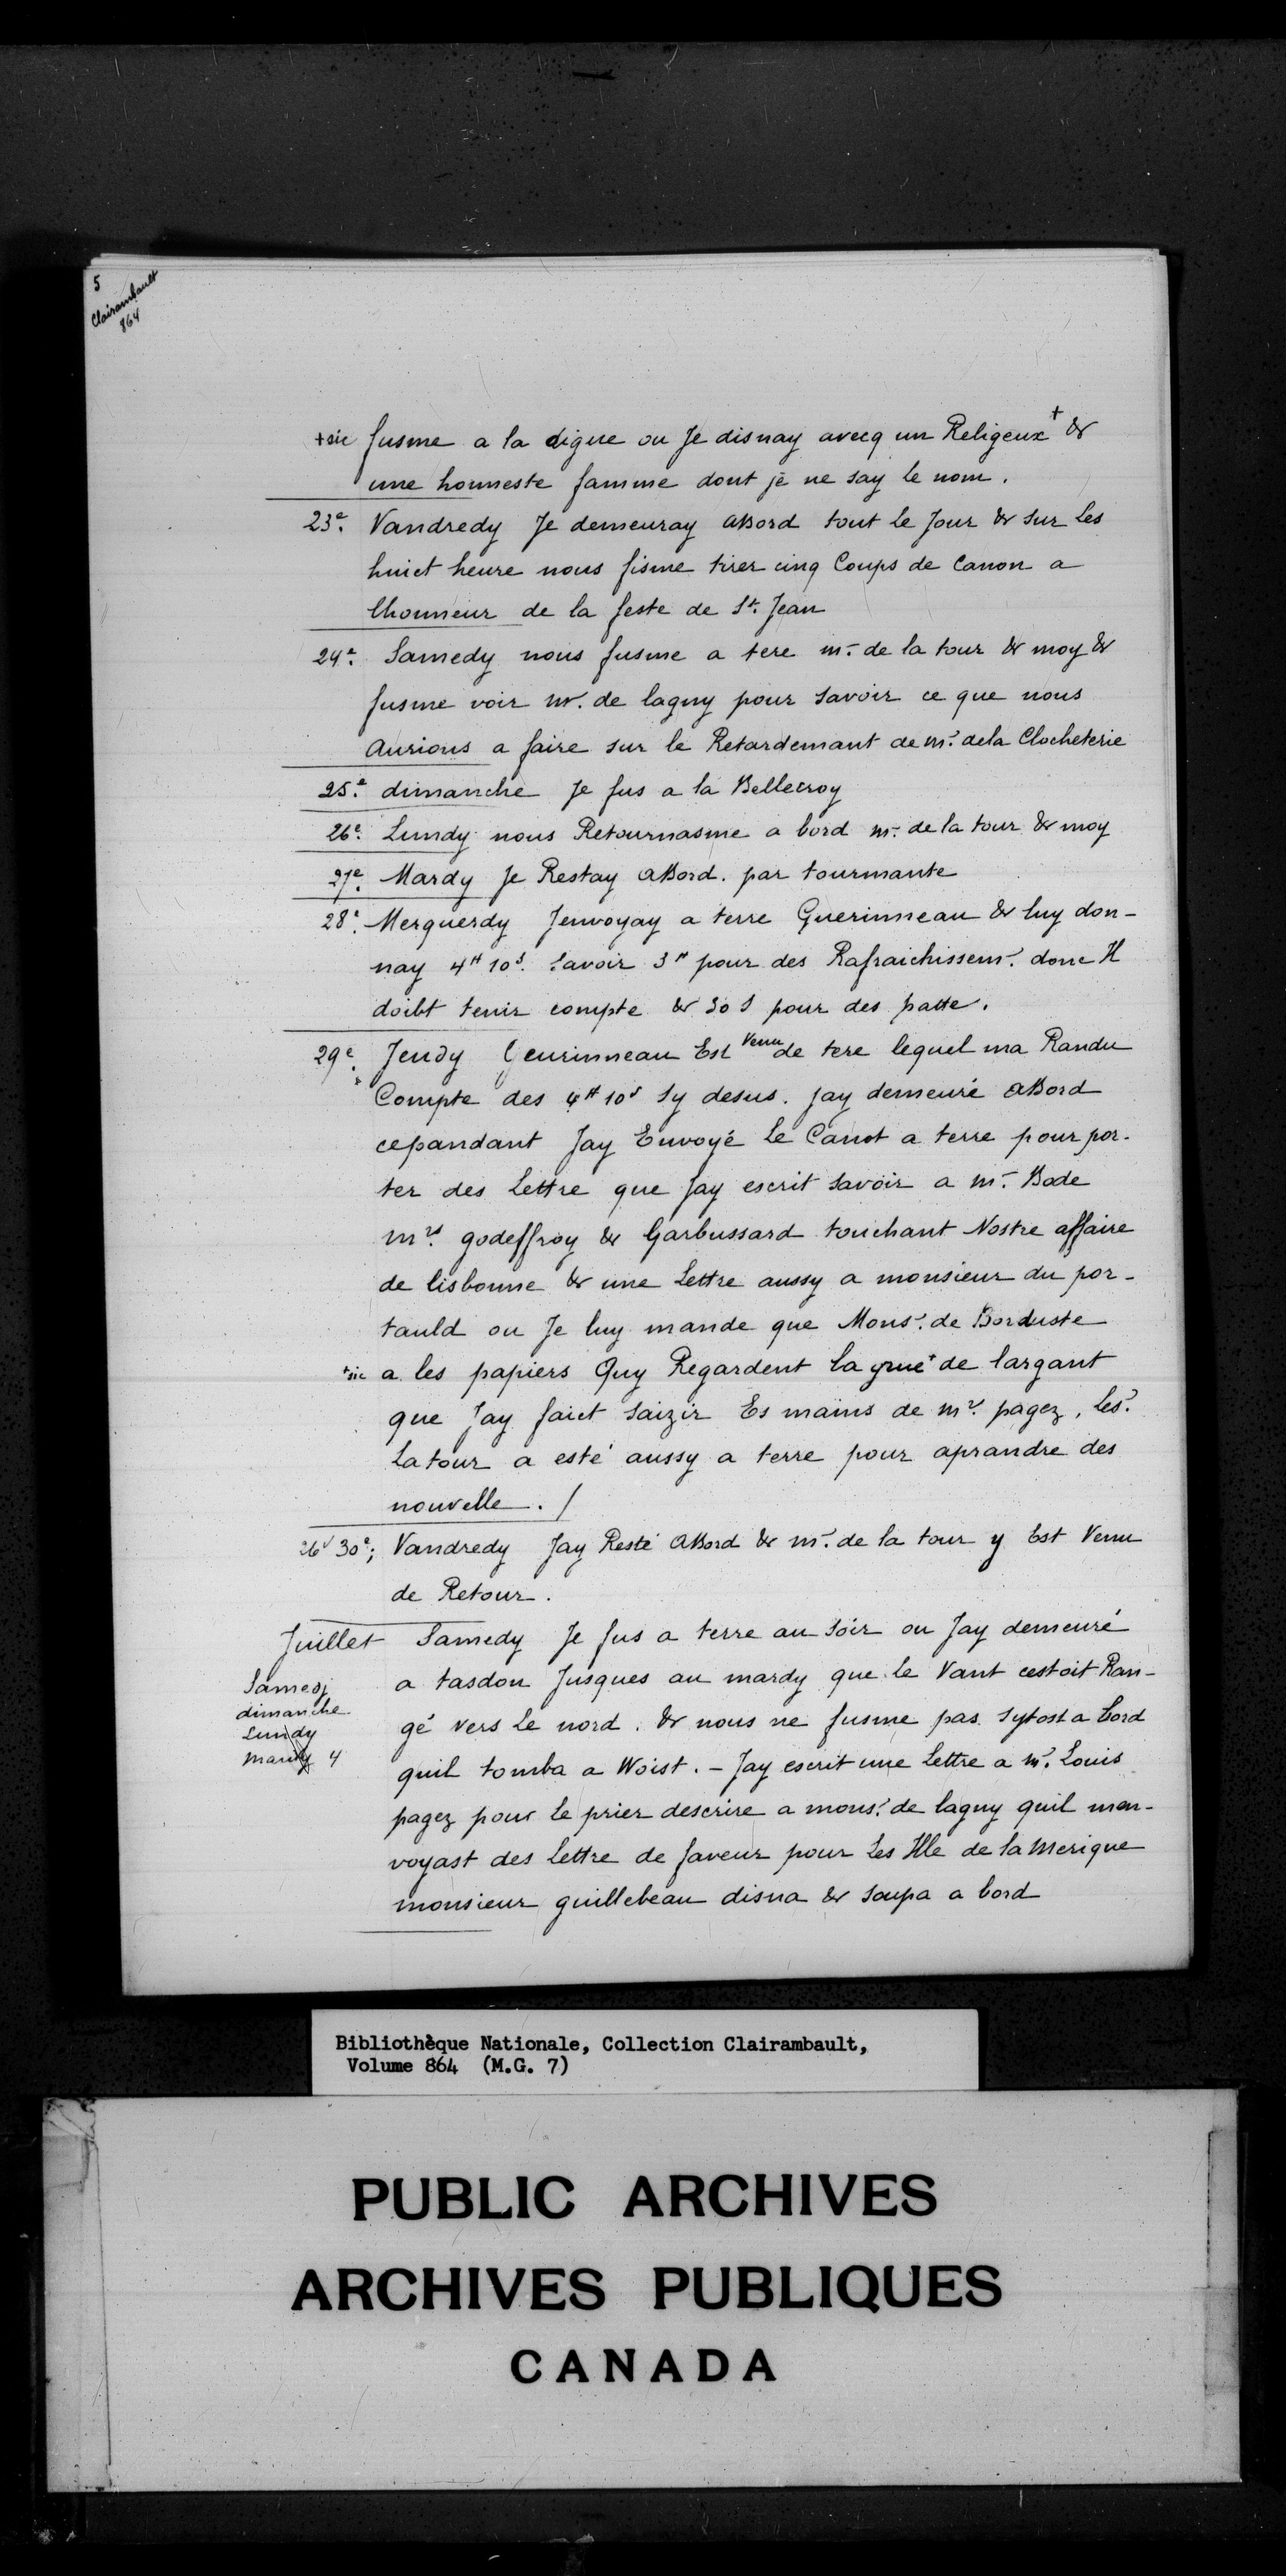 5
Clairambault
864
+sic fusme a la digue ou Je disnay avecq un Religeux+ &
une honneste famme dont je ne say le nom.
23e. Vandredy Je demeuray abord tout le Jour & sur Les
huict heure nous fisme tirer cinq Coups de Canon a
lhonneur de la feste de St. Jean
24e. Samedy nous fusme a tere mr. de la tour & moy &
fusme voir mr. de lagny pour savoir ce que nous
aurions a faire sur le Retardemant de mr. dela Clocheterie
25e. dimanche Je fus a la Bellecroy
26e. Lundy nous Retournasme a bord mr. de la tour & moy
27e. Mardy Je Restay abord. par tourmante
28e. Merquerdy Jenvoyay a terre Guerinneau & luy don-
nay 4tt 10s. Savoir 3tt pour des Rafraichissemt. donc Il
doibt tenir compte & 30 s pour des patte.
29e. Jeudy Geurinneau Est Venu de tere lequel ma Randu
Compte des 4tt 10s sy desus. Jay demeuré abord
cepandant Jay Envoyé le Canot a terre pour por-
ter des Lettre que Jay escrit savoir a mr. Bode
mrs. godeffroy & Garbussard touchant Nostre affaire
de lisbonne & une Lettre aussy a monsieur du por-
tauld ou Je luy mande que Monsr. de Borduste
+sic a les papiers Quy Regardent la grue+ de largant
que Jay faict saizir Es mains de mr. pagez, Les.
Latour a esté aussy a terre pour aprandre des
nouvelle. /
26 30e; Vandredy Jay Resté abord & mr. de la tour y Est Venu
de Retour.
Juillet Samedy Je fus a terre au soir ou Jay demeuré
Samedj a tasdon Jusques au mardy que le Vant cestoit Ran-
dimanche
Lundy gé vers le nord. & nous ne fusme pas sytost a bord
mardy 4 quil tomba a Woist. - Jay escrit une Lettre a mr. Louis
pagez pour le prier descrire a monsr. de lagny quil men-
voyast des Lettre de faveur pour Les Ille de la Merique
monsieur guillebeau disna & soupa a bord
Bibliothèque Nationale, Collection Clairambault,
Volume 864 (M.G. 7)
PUBLIC ARCHIVES
ARCHIVES PUBLIQUES
CANADA